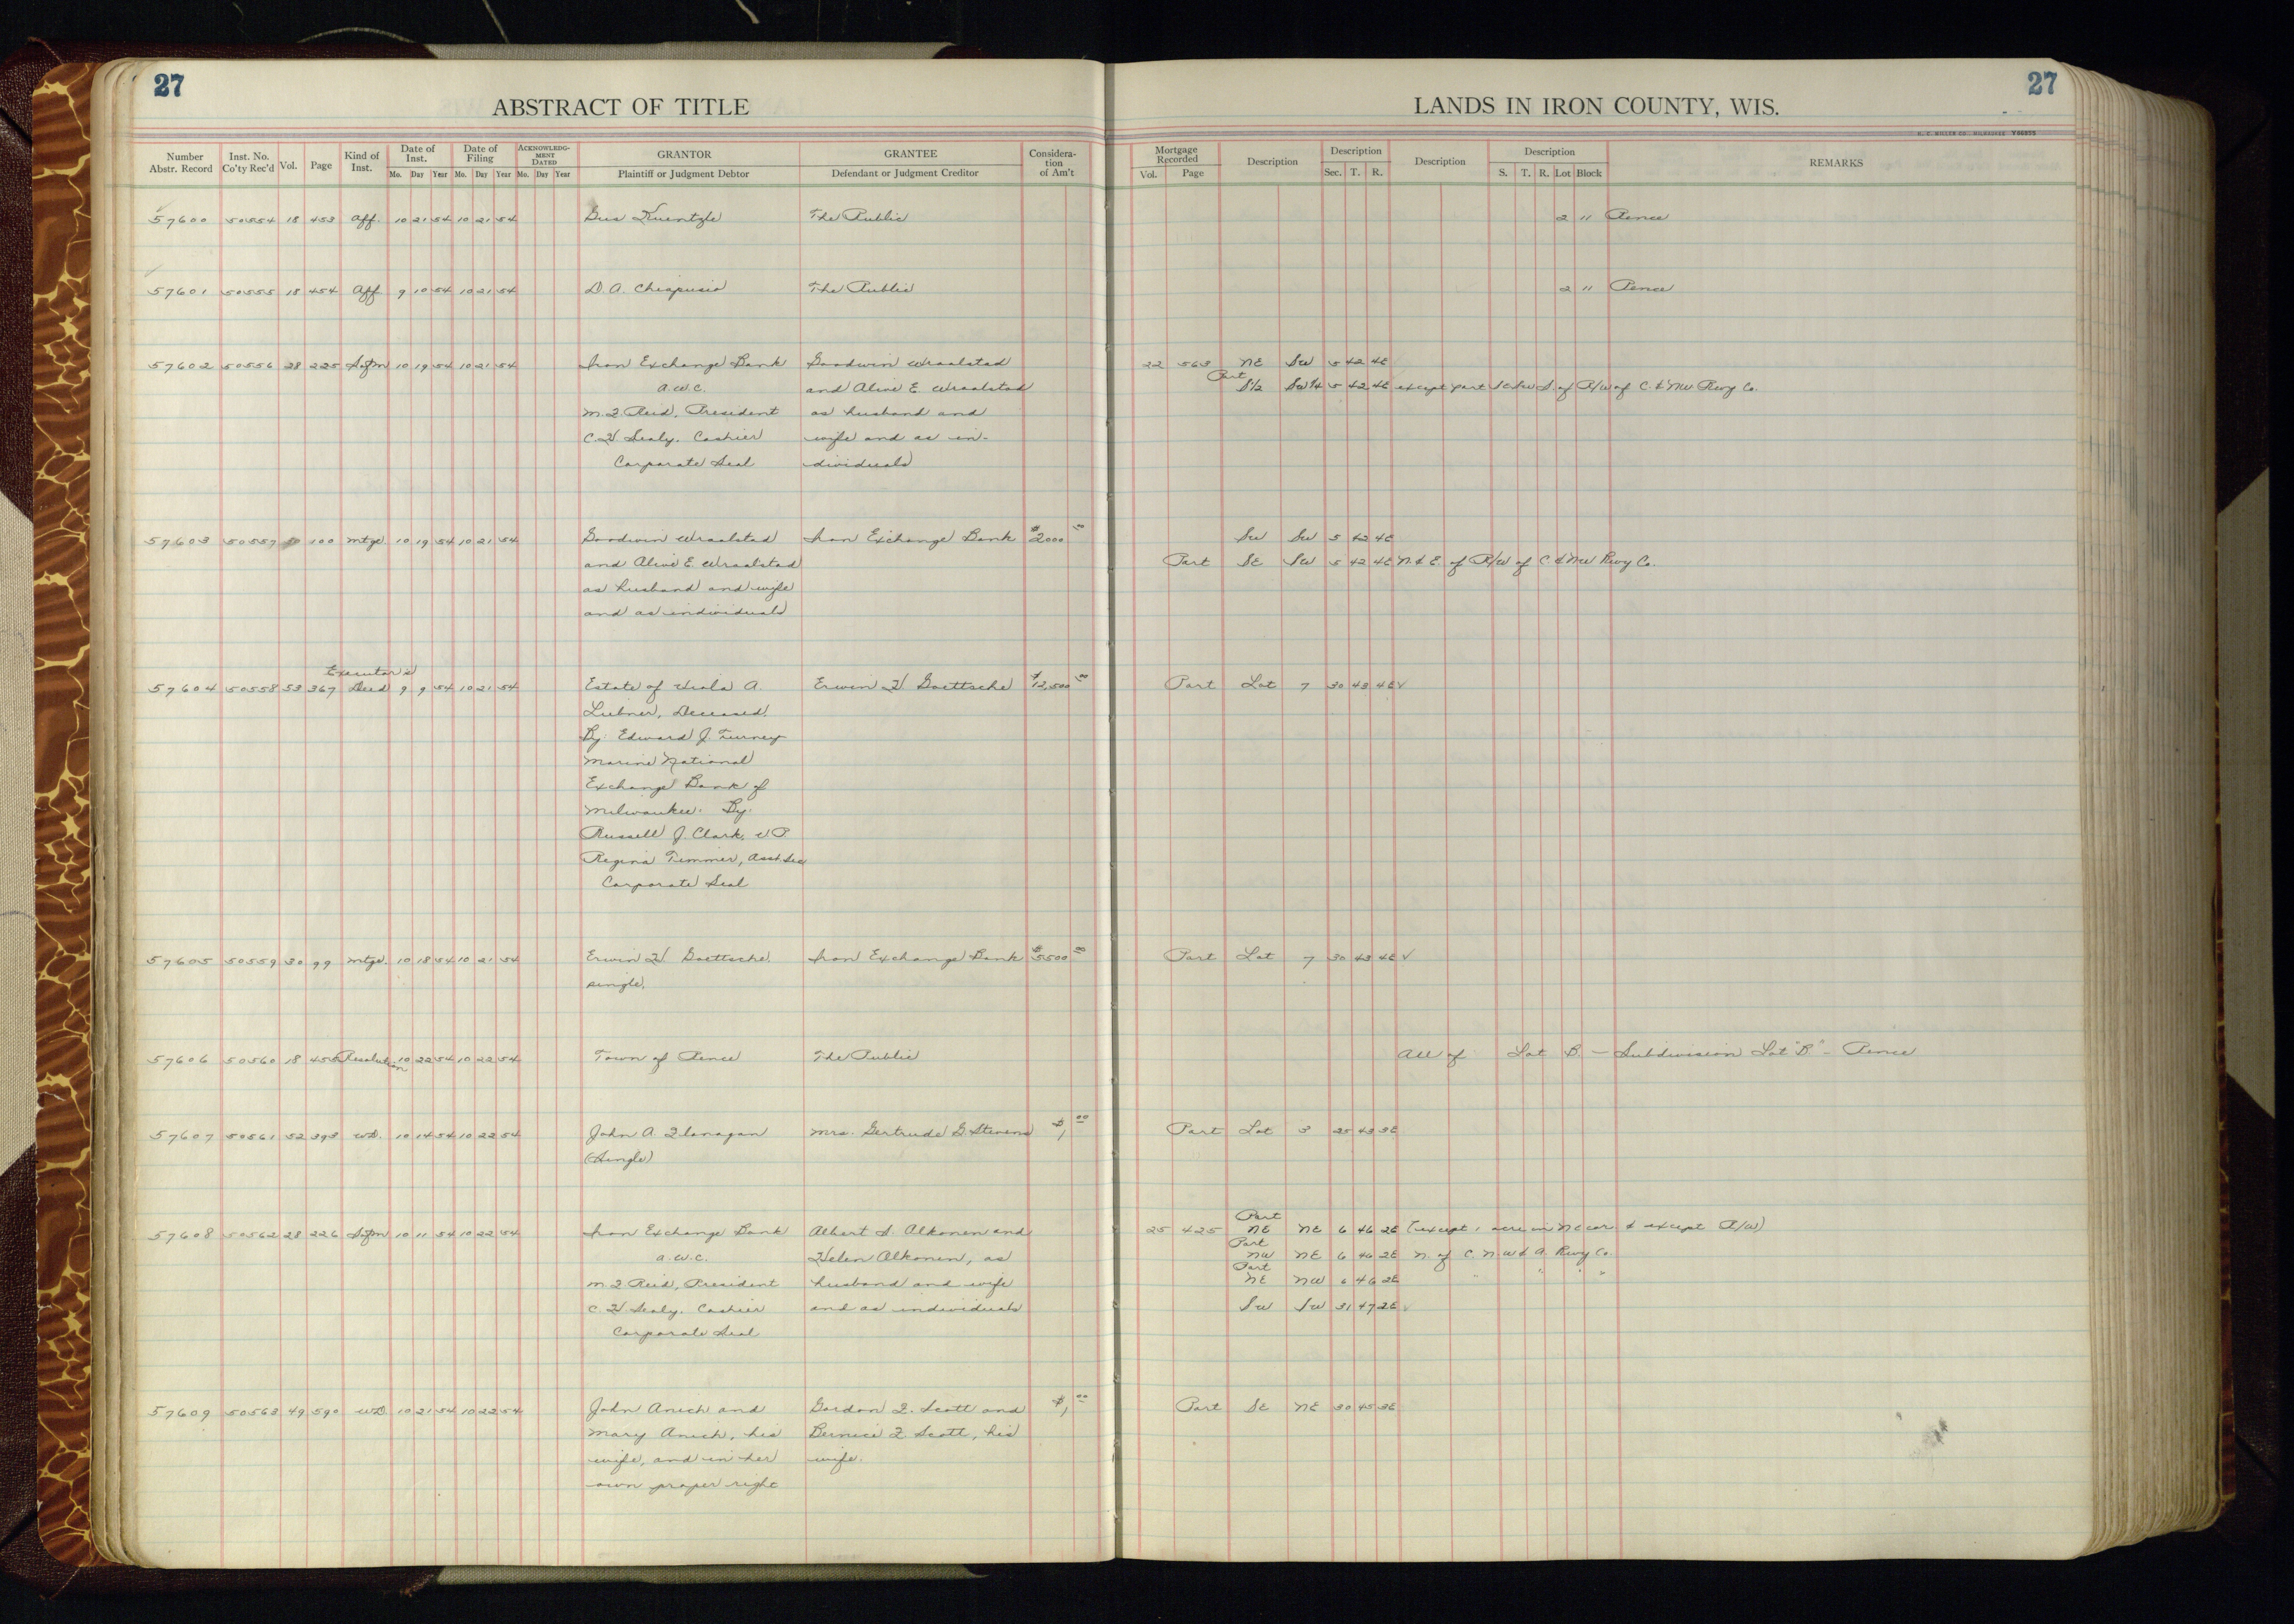 27
27
ABSTRACT OF TITLE
LANDS IN IRON COUNTY, WIS.
H. C. MILLER CO., MILWAUKEE
Number Abstr. Record Inst. No. Co'ty Rec'd Vol. Page Kind of Inst. Date of Inst. Mo. Day Year Date of Filing Mo. Day Year ACKNOWLEDGMENT DATED Mo. Day Year GRANTOR Plaintiff or Judgment Debtor GRANTEE Defendant or Judgment Creditor Consideration of Am't
Mortgage Recorded Vol. Page Description Description Sec. T. R. Description Description S. T. R. Lot Block REMARKS
57600 50554 18 453 Aff. 10 21 54 10 21 54 Gus Kuentzle The Public 2 11 Pence
57601 50555 18 454 Aff 9 10 54 10 21 54 D. A. Chiapusio The Public 2 11 Pence
57602 50556 28 225 10 19 54 10 21 54 Iron Exchange Bank Goodwin Wraalstad 22 563 NE SW 5 42 4E
Part
A.W.C. and Alive E. Wraalstad S1/2 SW1/4 5 42 4E except part SESW S. of R/W of C. & NW Rwy Co.
M. F. Reid, President as husband and
C. H. Sealy, Cashier wife and as in-
Corporate Seal dividuals
57603 50557 100 Mtge 10 19 54 10 21 54 Goodwin Wraalstad Iron Exchange Bank $2000 00 SW SW 5 42 4E
and Alive E. Wraalstad Part SE SW 5 42 4E N. & E. of R/W of C & NW Rwy Co.
as husband and wife
and as individuals
Executor's
57604 50558 53 367 Deed 9 9 54 10 21 54 Estate of A. Erwin H. Goettsche $12,500 00 Part Lot 7 30 43 4E ✓
Luebner, Deceased.
By: Edward J. Turney
Marine National
Exchange Bank of
Milwaukee. By:
Russell J. Clark, V.P.
Regina Timmer, Asst. Sec
Corporate Seal
57605 50559 30 99 Mtge. 10 18 54 10 21 54 Erwin H. Goettsche, Iron Exchange Bank $5500 00 Part Lot 7 30 43 4E ✓
single.
57606 50560 18 455 Resolution 10 22 54 10 22 54 Town of Pence The Public All of Lot B. - Subdivision Lot "B" - Pence
57607 50561 52 393 WD. 10 14 54 10 22 54 John A. Flanagan Mrs. Gertrude G. Stevens $1 00 Part Lot 3 25 43 3E
(Single)
Part
57608 50562 28 226 10 11 54 10 22 54 Iron Exchange Bank Albert S. Alkonen and 25 425 NE NE 6 46 2E (except 1 acre in NE cor & except R/W)
Part
A.W.C. Helen Alkonen, as NW NE 6 46 2E N. of C. N W & A. Rwy Co.
Part
M. F. Reid, President husband and wife NE NW 6 46 2E " " " "
C. H. Sealy, Cashier and as individuals SW SW 31 47 2E ✓
Corporate Seal
57609 50563 49 590 WD. 10 21 54 10 22 54 John Anich and Gordon F. Scott and $1 00 Part SE NE 30 45 3E
Mary Anich, his Bernice F. Scott, his
wife, and in her wife.
own proper right